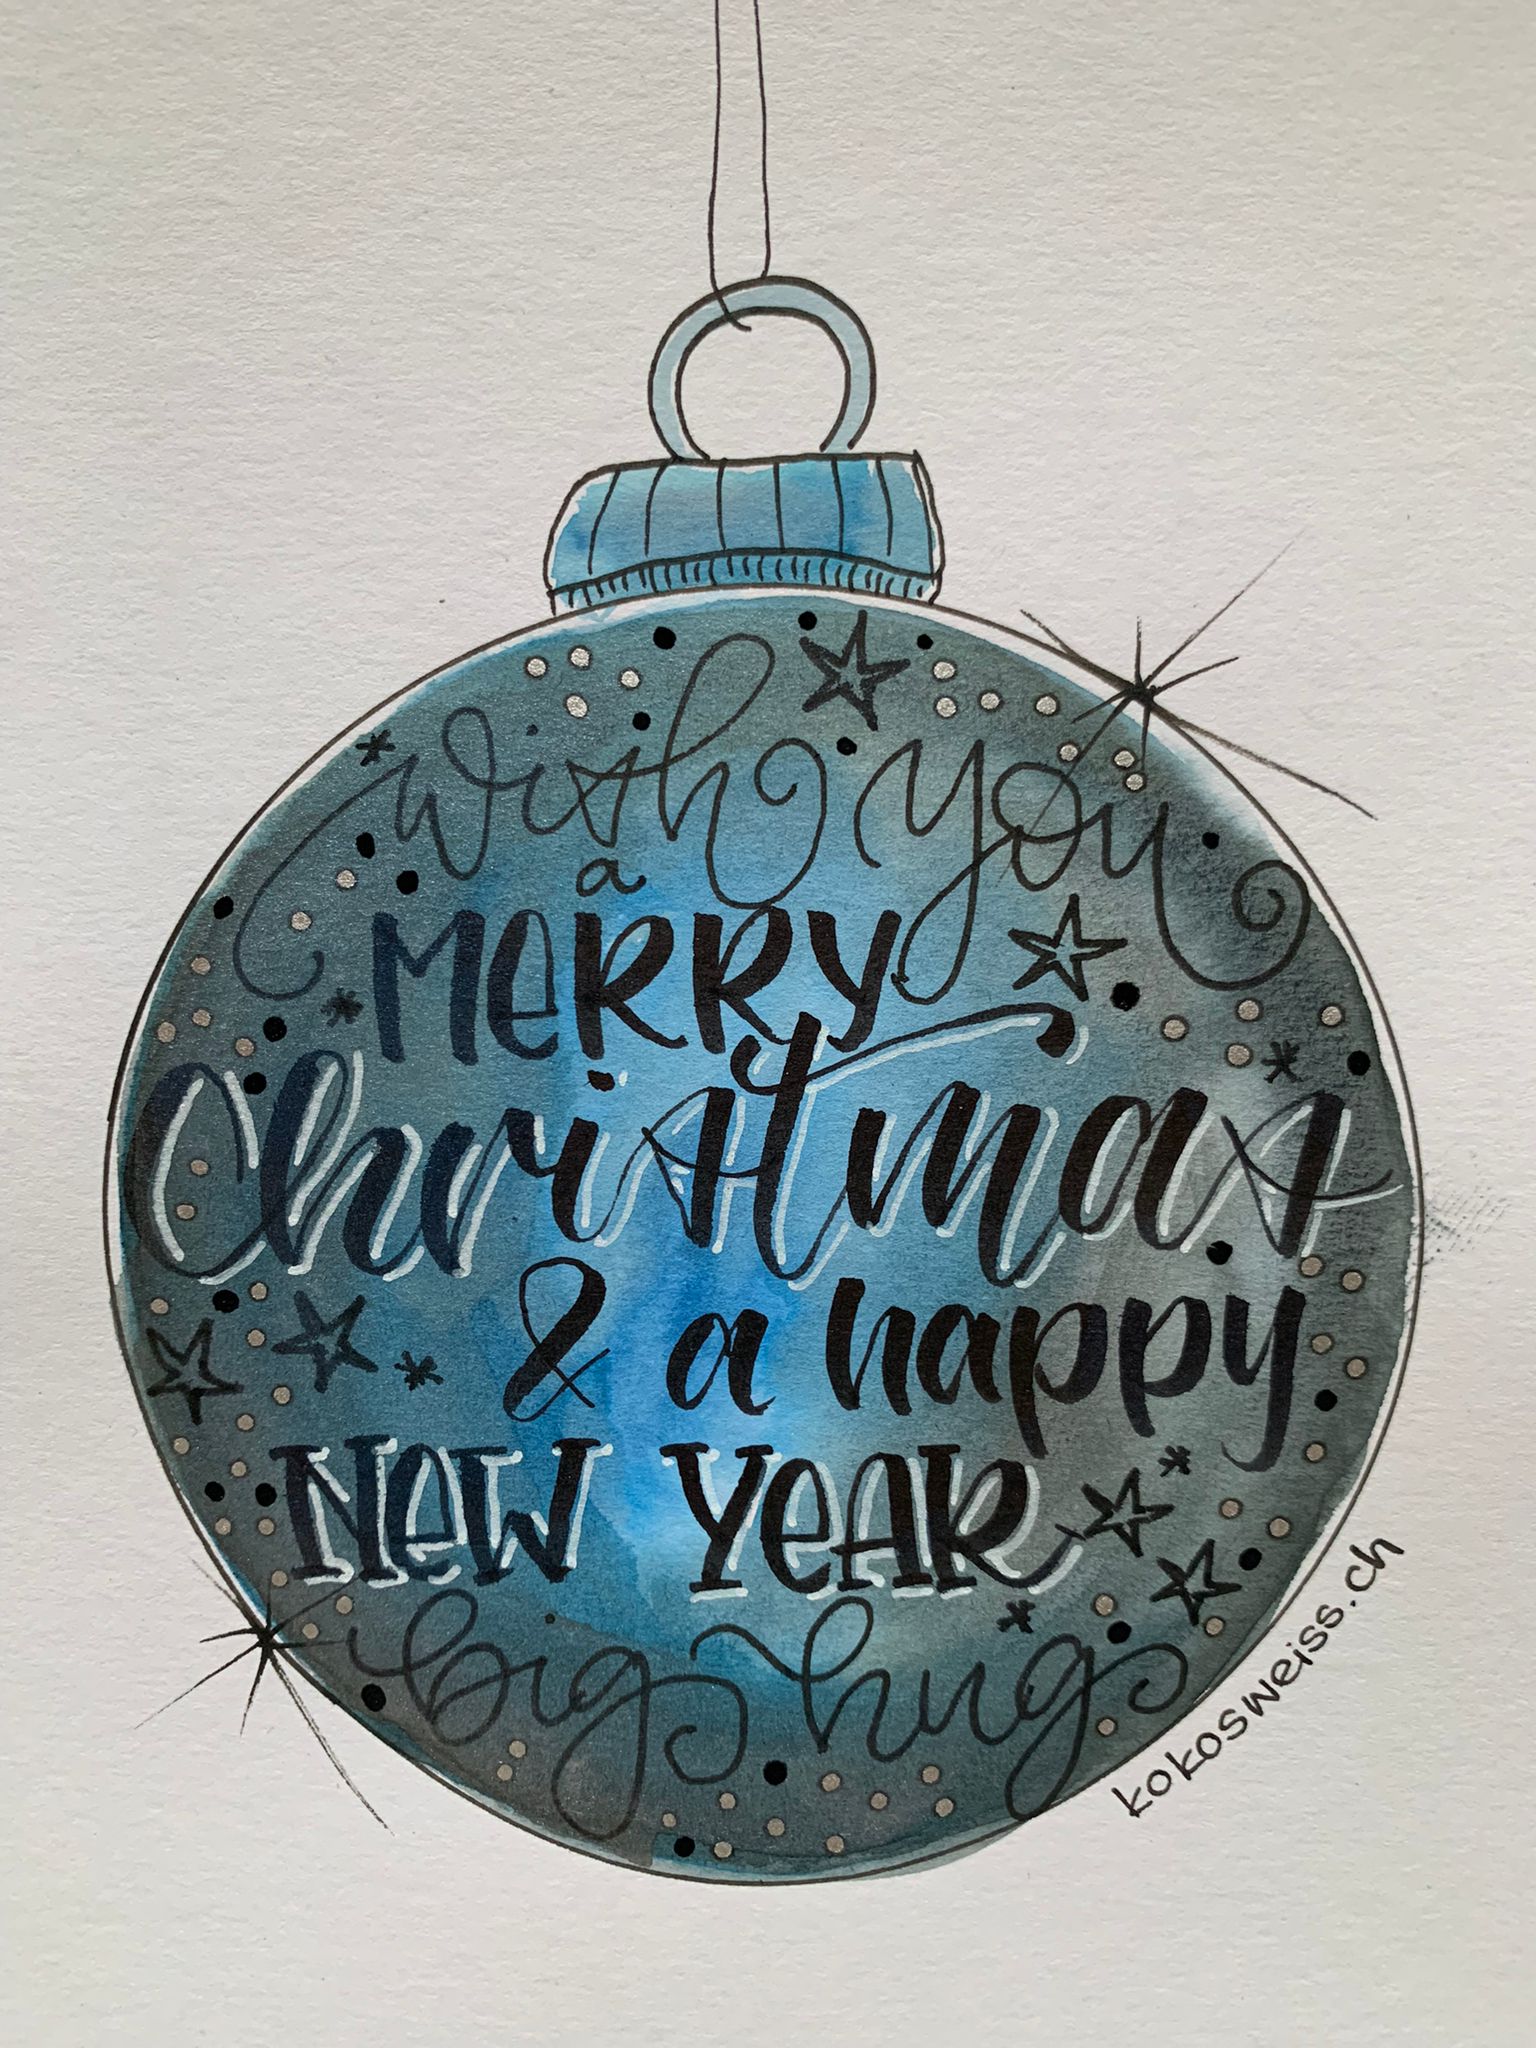 wish you
a
MeRRY
Christmas
& a happy
New YeAR
big hug
kokosweiss.ch